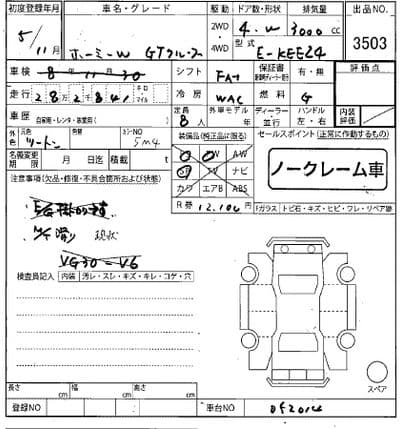 初度登録年月 車名・グレード 駆動 ドア数・形状 排気量 出品NO
5/11月 ホーミーW GTクルーズ 2WD・4WD 4・W 3000cc 3503
型式 E-KEE24
車検 8年11月30 シフト FAT 保証書 有・無 評価点
走行 28万2千84 キロ・マイル 冷房 WAC 燃料 G
車歴 自家用・レンタ・ 定員 8人 外車モデル 年 ディーラー・並行 ハンドル 左・右 内装評価
外色 ツートン 元色 カラーNO 5M4 装備品(純正品に限る) セールスポイント(正常に作動するもの)
名義変更期限 月 日迄 積載 t PW AW
SR TV ナビ
カワ エアB ABS
ノークレーム車
注意事項(欠品・修復・不具合箇所および状態)
R券 12,100 Fガラス トビ石・キズ・ヒビ・フレ・リペア跡
現状
VG30-V6
検査員記入 内装 汚レ・スレ・キズ・キレ・コゲ・穴
スペア
長さ cm 幅 cm 高さ cm
登録NO 車台NO